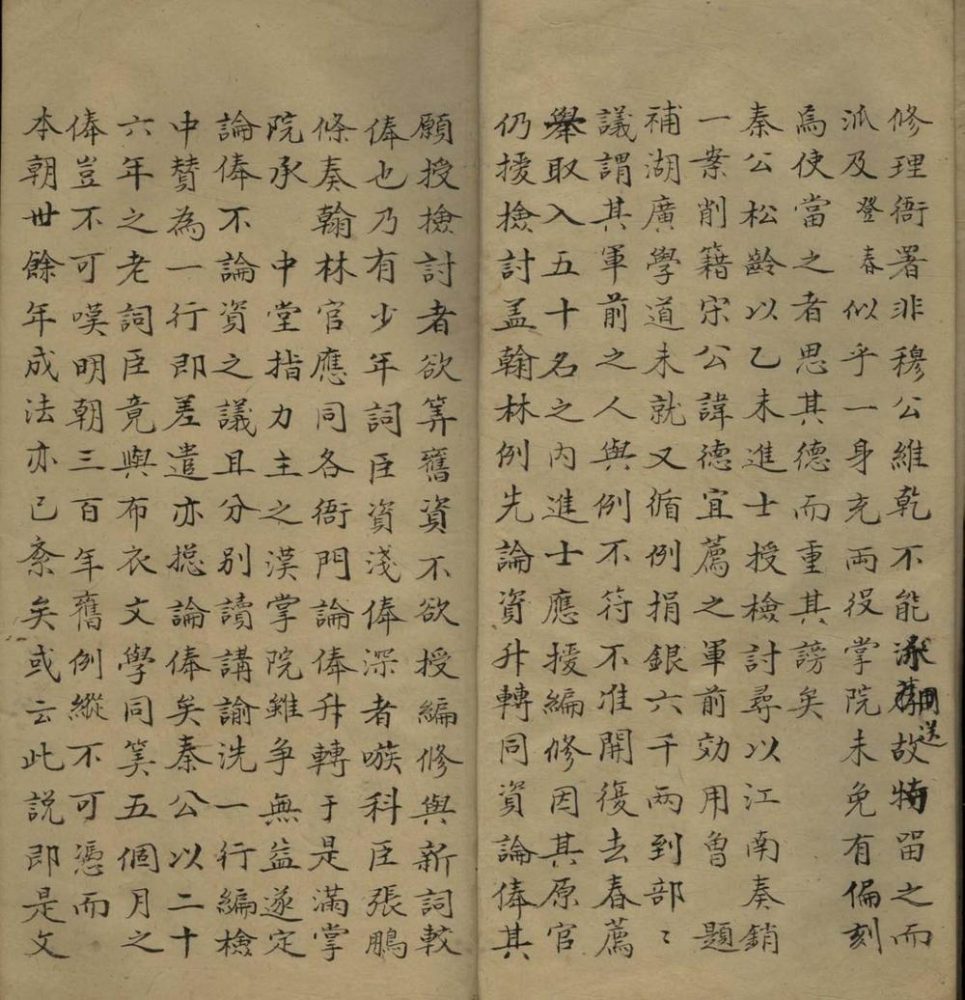 修理衙署非穆公維乾不能故特留之而
派及登春似乎一身充兩役掌院未免有偏刻
焉使當之者思其德而重其謗矣
秦公松齡以乙未進士授檢討尋以江南奏銷
一案削籍宋公諱德宜薦之軍前効用曾 題
補湖廣學道未就又循例捐銀六千兩到部〻
議謂其軍前之人與例不符不准開復去春薦
舉取入五十名之內進士應援編修因其原官
仍援檢討盖翰林例先論資升轉同資論俸其
願授檢討者欲筭舊資不欲授編修與新詞較
俸也乃有少年詞臣資淺俸深者嗾科臣張鵬
條奏翰林官應同各衙門論俸升轉于是滿掌
院承 中堂指力主之漢掌院雖争無益遂定
論俸不論資之議且分别讀講諭洗一行編檢
中賛為一行即差遣亦揔論俸矣秦公以二十
六年之老詞臣竟與布衣文學同筭五個月之
俸豈不可嘆明朝三百年舊例縱不可憑而
本朝世餘年成法亦已紊矣或云此説即是文